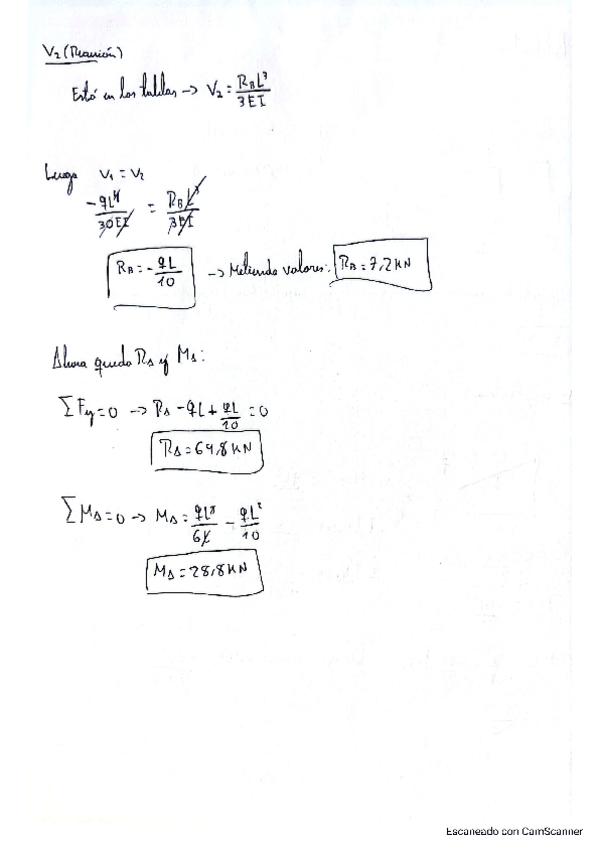 V₂ (Reacción)
Está en las tablas -> V₂ = R_B L³ / 3EI
Luego V₁ = V₂
-qL⁴ / 30EI = R_B L³ / 3EI
R_B = - qL / 10 -> Metiendo valores: R_B = 7,2 kN
Ahora queda R_A y M_A:
∑F_y = 0 -> R_A - qL + qL / 10 = 0
R_A = 64,8 kN
∑M_A = 0 -> M_A = qL³ / 6L - qL² / 10
M_A = 28,8 kN
Escaneado con CamScanner